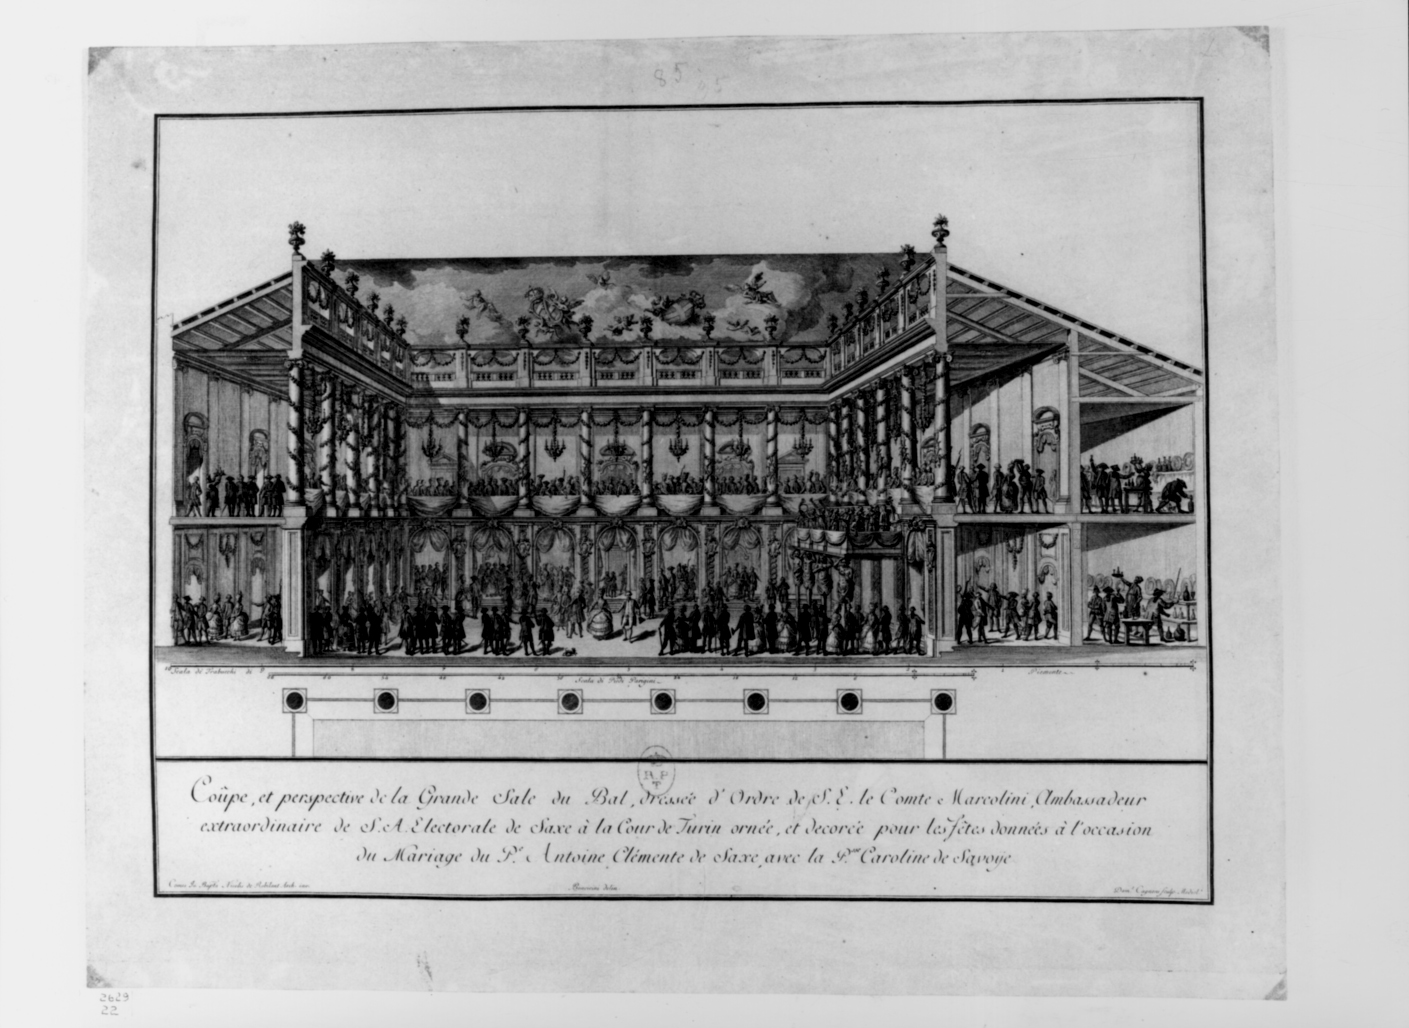 85
Scala di Trabucchi di P.
Scala di Piedi Parigini
Piemonte
Coûpe, et perspective de la Grande Sale du Bal, dressée d'Ordre de S. E. le Comte Marcolini, Ambassadeur
extraordinaire de S. A. Electorale de Saxe à la Cour de Turin ornée, et decorée pour les fêtes données à l'occasion
du Mariage du P.ce Antoine Clémente de Saxe, avec la P.sse Caroline de Savoÿe
delin.
sculp.
2629
22